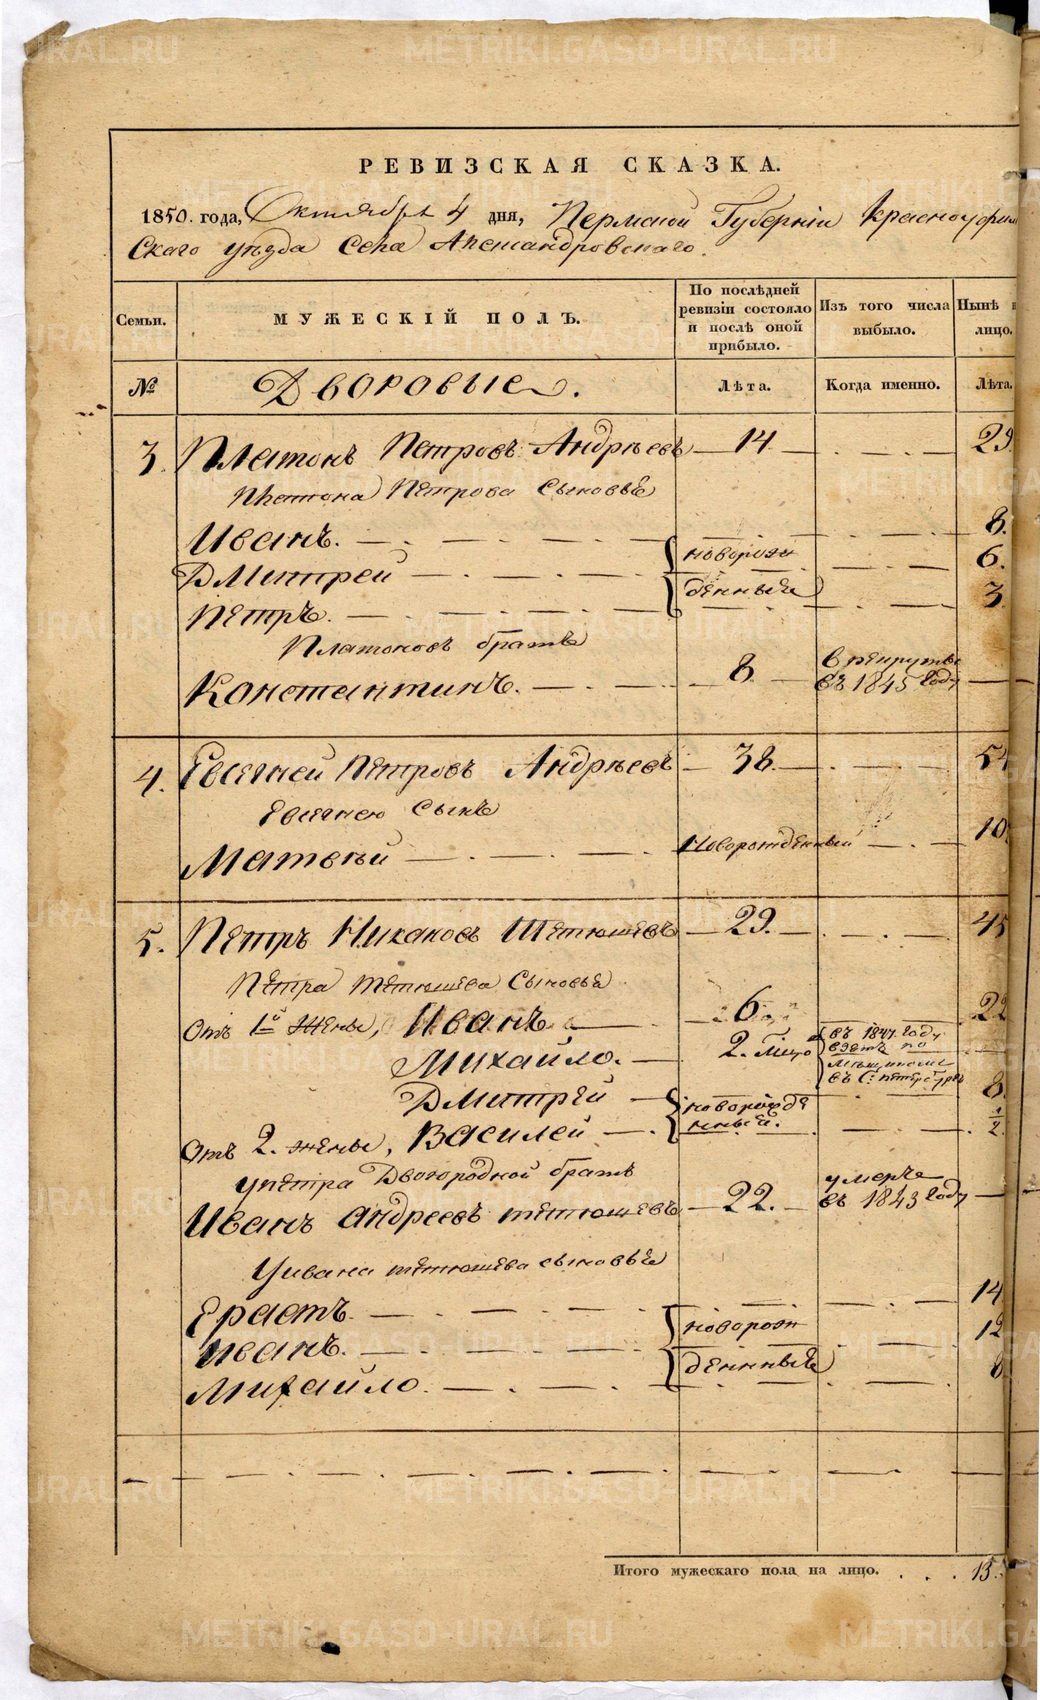 РЕВИЗСКАЯ СКАЗКА.
1850. года, Октября 4 дня, Пермской Губернiи Красноуфим
скаго уѣзда Села Александровскаго.
Семьи. МУЖЕСКIЙ ПОЛЪ. По послѣдней ревизiи состояло и послѣ оной прибыло. Изъ того числа выбыло. Нынѣ лицо.
№ Дворовые. Лѣта. Когда именно. Лѣта.
3. Платонъ Петровъ Андрѣевъ 14 29.
Платона Петрова сыновье
Иванъ. 8.
Дмитрей новорож 6.
Петръ. денные 3
Платоновъ братъ
Константинъ. 8 в рекруты въ 1845 году
4. Евсегней Петровъ Андрѣевъ 38. 54
Евсегнею сынъ
Матвѣй Новорожденный 10
5. Петръ Никаковъ Тетюшевъ 29. 45
Петра тетюшева Сыновье
Отъ 1й жены, Иванъ 6 22
Михайло. 2. въ 1847 году взятъ по
в С: петербургъ
Дмитрей новорожде 8
Отъ 2. жены, Василей нные. 1/2
у петра Двоюродной братъ
Иванъ андреевъ тетюшевъ 22. умеръ въ 1843 году
У ивана тетюшева сыновье
Ерастъ. 14
иванъ. новорож 12
Михайло. денные 8
Итого мужескаго пола на лицо. . . . 15.
METRIKI.GASO-URAL.RU